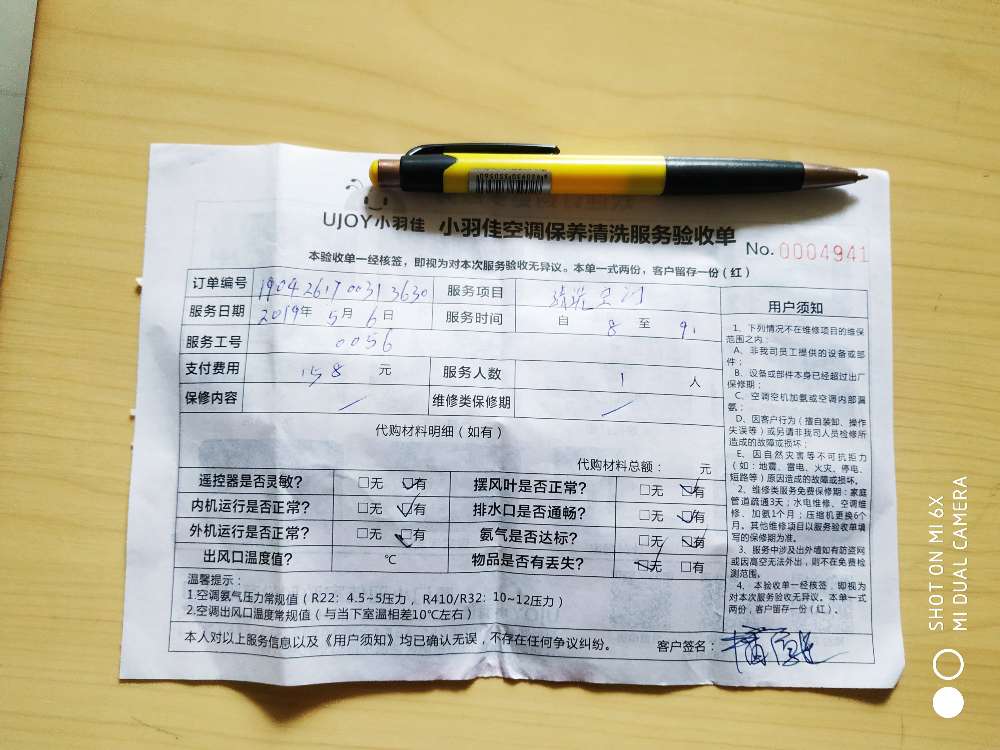 UJOY小羽佳 小羽佳空调保养清洗服务验收单
No. 0004941
本验收单一经核签，即视为对本次服务验收无异议。本单一式两份，客户留存一份（红）
订单编号 1904261700313630 服务项目 清洗空调
服务日期 2019年5月6日 服务时间 自 8 至 9
服务工号 0056
支付费用 158 元 服务人数 1 人
保修内容 / 维修类保修期 /
代购材料明细（如有）
代购材料总额： 元
遥控器是否灵敏？ □无 ☑有 摆风叶是否正常？ □无 ☑有
内机运行是否正常？ □无 ☑有 排水口是否通畅？ □无 ☑有
外机运行是否正常？ □无 ☑有 氨气是否达标？ □无 ☑有
出风口温度值？ ℃ 物品是否有丢失？ ☑无 □有
温馨提示：
1.空调氨气压力常规值（R22：4.5~5压力，R410/R32：10~12压力）
2.空调出风口温度常规值（与当下室温相差10℃左右）
本人对以上服务信息以及《用户须知》均已确认无误，不存在任何争议纠纷。 客户签名：
用户须知
1、下列情况不在维修项目的维保
范围之内：
A、非我司员工提供的设备或部
件；
B、设备或部件本身已经超过出厂
保修期；
C、空调空机加氨或空调内部漏
氨；
D、因客户行为（擅自装卸、操作
失误等）或另请非我司人员检修所
造成的故障或损坏；
E、因自然灾害等不可抗拒力
（如：地震、雷电、火灾、停电、
短路等）原因造成的故障或损坏。
2、维修类服务免费保修期：家庭
管道疏通3天；水电维修、空调维
修、加氨1个月；压缩机更换6个
月。其他维修项目以服务验收单填
写的保修期为准。
3、服务中涉及出外墙如有防盗网
或因高空无法外出，则不在免费检
测范围。
4、本验收单一经核签，即视为
对本次服务验收无异议。本单一式
两份，客户留存一份（红）。
SHOT ON MI 6X
MI DUAL CAMERA